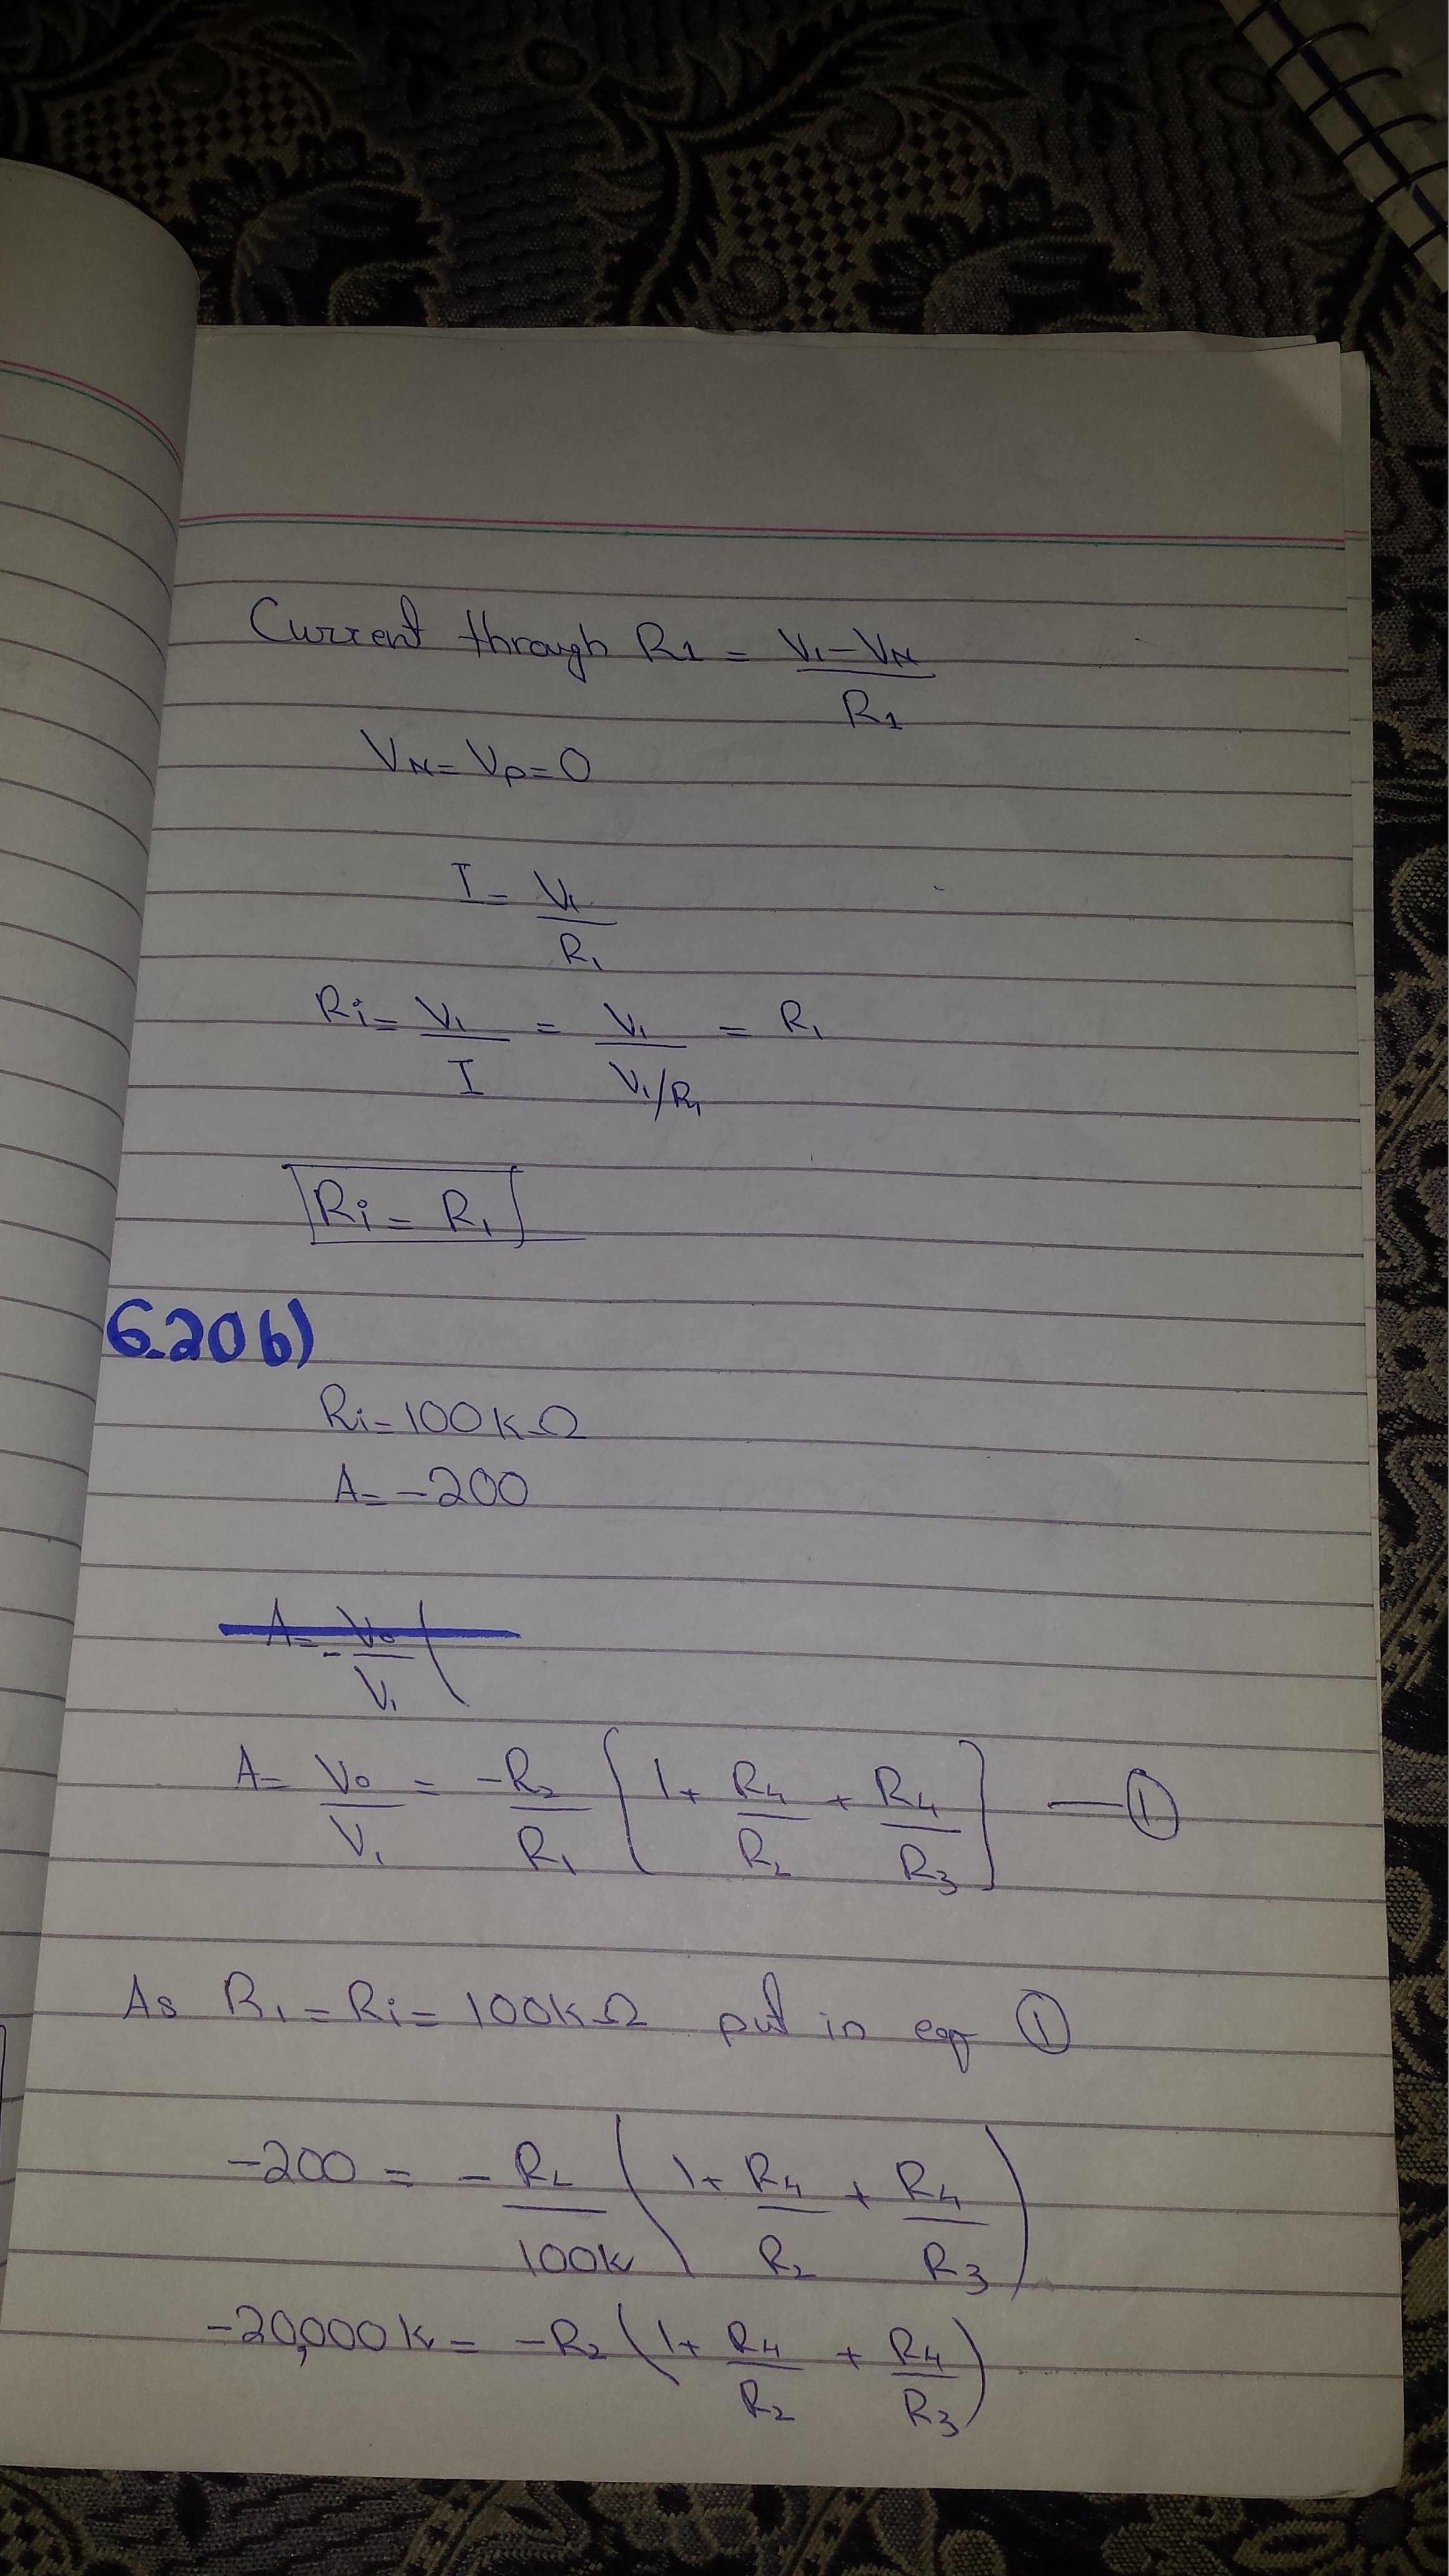 Current through R1 = V1-VN / R1
VN = Vp = 0
I = V1 / R1
Ri = V1 / I = V1 / V1/R1 = R1
Ri = R1
6.20 b)
Ri = 100kΩ
A = -200
A = - Vo / V1 (
A = Vo / V1 = -R2 / R1 [ 1 + R4 / R2 + R4 / R3 ] — ①
As R1 = Ri = 100kΩ put in eq ①
-200 = - R2 / 100k ( 1 + R4 / R2 + R4 / R3 )
-20,000k = -R2 ( 1 + R4 / R2 + R4 / R3 )